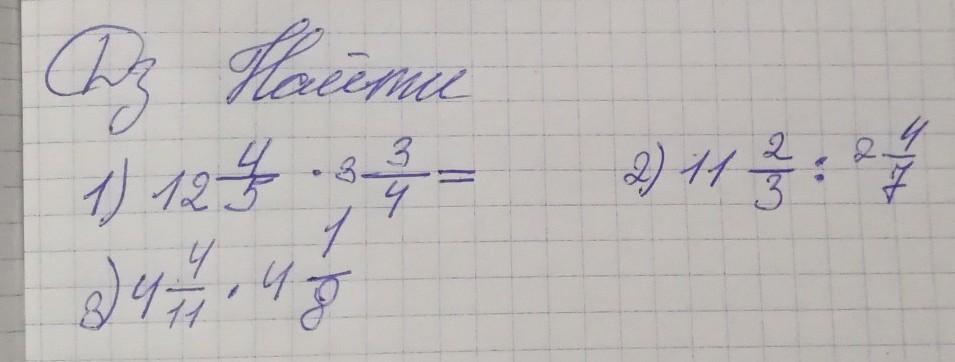 Дз Найти
1) 12 4/5 · 3 3/4 = 2) 11 2/3 : 2 4/7
3) 4 4/11 · 4 1/8